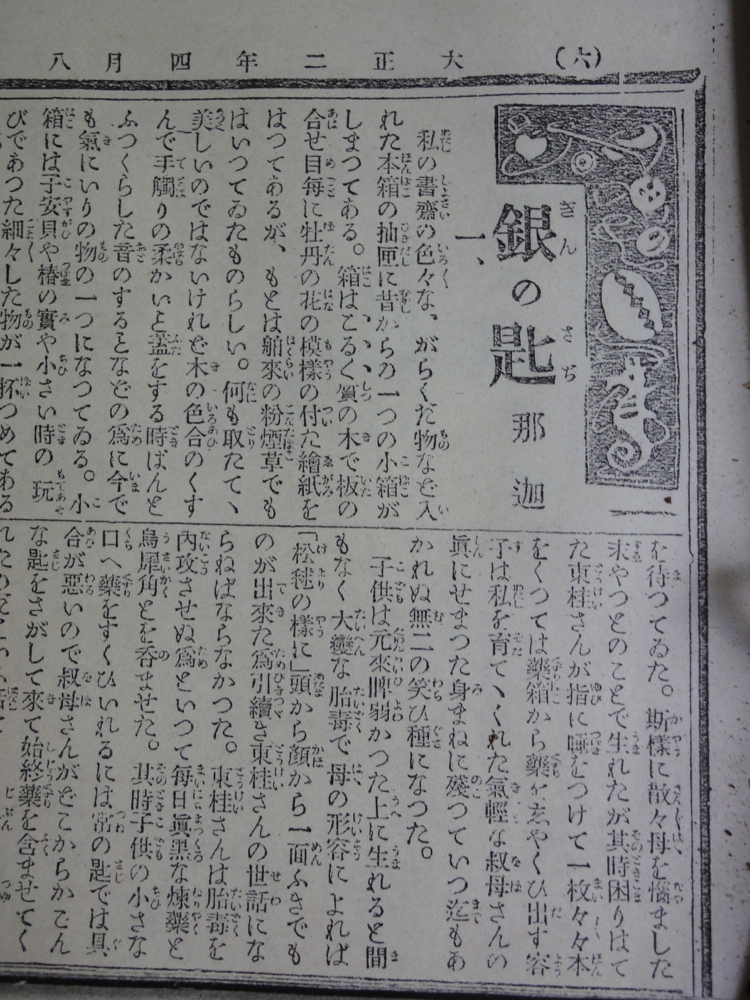 （六）
大正二年四月八
ぎん さぢ
銀の匙
那迦
一、
私の書齋の色々な、がらくた物など入
れた本箱の抽匣に昔からの一つの小箱が
しまつてある。箱はこるく質の木で板の
合せ目毎に牡丹の花の模樣の付た繪紙を
はつてあるが、もとは舶來の粉煙草でも
はいつてゐたものらしい。何も取たてヽ
美しいのではないけれど木の色合のくす
んで手觸りの柔かいと蓋をする時ぱんと
ふつくらした音のすることなどの爲に今で
も氣にいりの物の一つになつてゐる。小
箱には子安貝や椿の實や小さい時の玩
びであつた細々した物が一杯つめてある
を待つてゐた。斯樣に散々母を惱ました
末やつとのことで生れたが其時困りはて
た東桂さんが指に唾をつけて一枚々々本
をくつては藥箱から藥を玄やくひ出す容
子は私を育てヽくれた氣輕な叔母さんの
眞にせまつた身まねに殘つていつ迄もあ
かれぬ無二の笑ひ種になつた。
子供は元來脾弱かつた上に生れると間
もなく大變な胎毒で、母の形容によれば
「松毬の樣に」頭から顔から一面ふきでも
のが出來た爲引續き東桂さんの世話にな
らねばならなかつた。東桂さんは胎毒を
内攻させぬ爲といつて毎日眞黒な煉藥と
烏犀角とを呑ませた。其時子供の小さな
口へ藥をすくひいれるには常の匙では具
合が惡いので叔母さんがどこからかこん
な匙をさがして來て始終藥を含ませてく